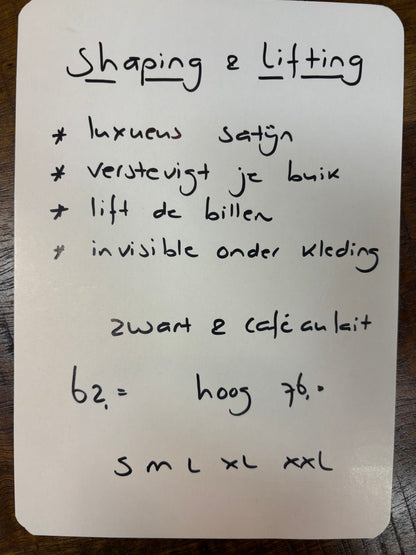 Shaping & Lifting
* luxueus satijn
* verstevigt je buik
* lift de billen
* invisible onder kleding
zwart & café au lait
62,= hoog 76,-
S M L XL XXL